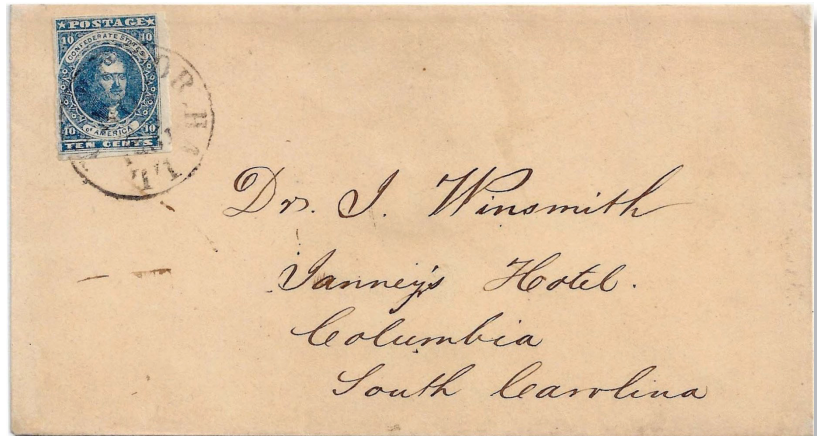 POSTAGE
10 10
CONFEDERATE STATES
of AMERICA
10 10
TEN CENTS
Dr. J. Winsmith
Janney's Hotel.
Columbia
South Carolina